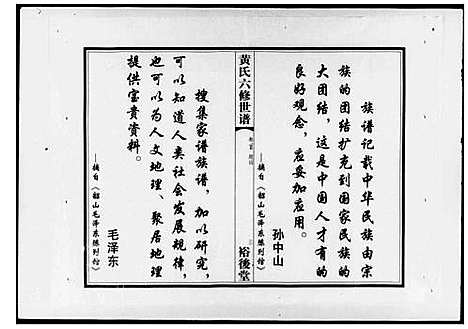 族谱记载中华民族由宗
族的团结扩充到国家民族的
大团结，这是中国人才有的
良好观念，应妥加应用。
孙中山
——摘自《韶山毛泽东陈列馆》
黄氏六修世谱
裕後堂
搜集家谱族谱，加以研究，
可以知道人类社会发展规律，
也可以为人文地理、聚居地理
提供宝贵资料。
毛泽东
——摘自《韶山毛泽东陈列馆》